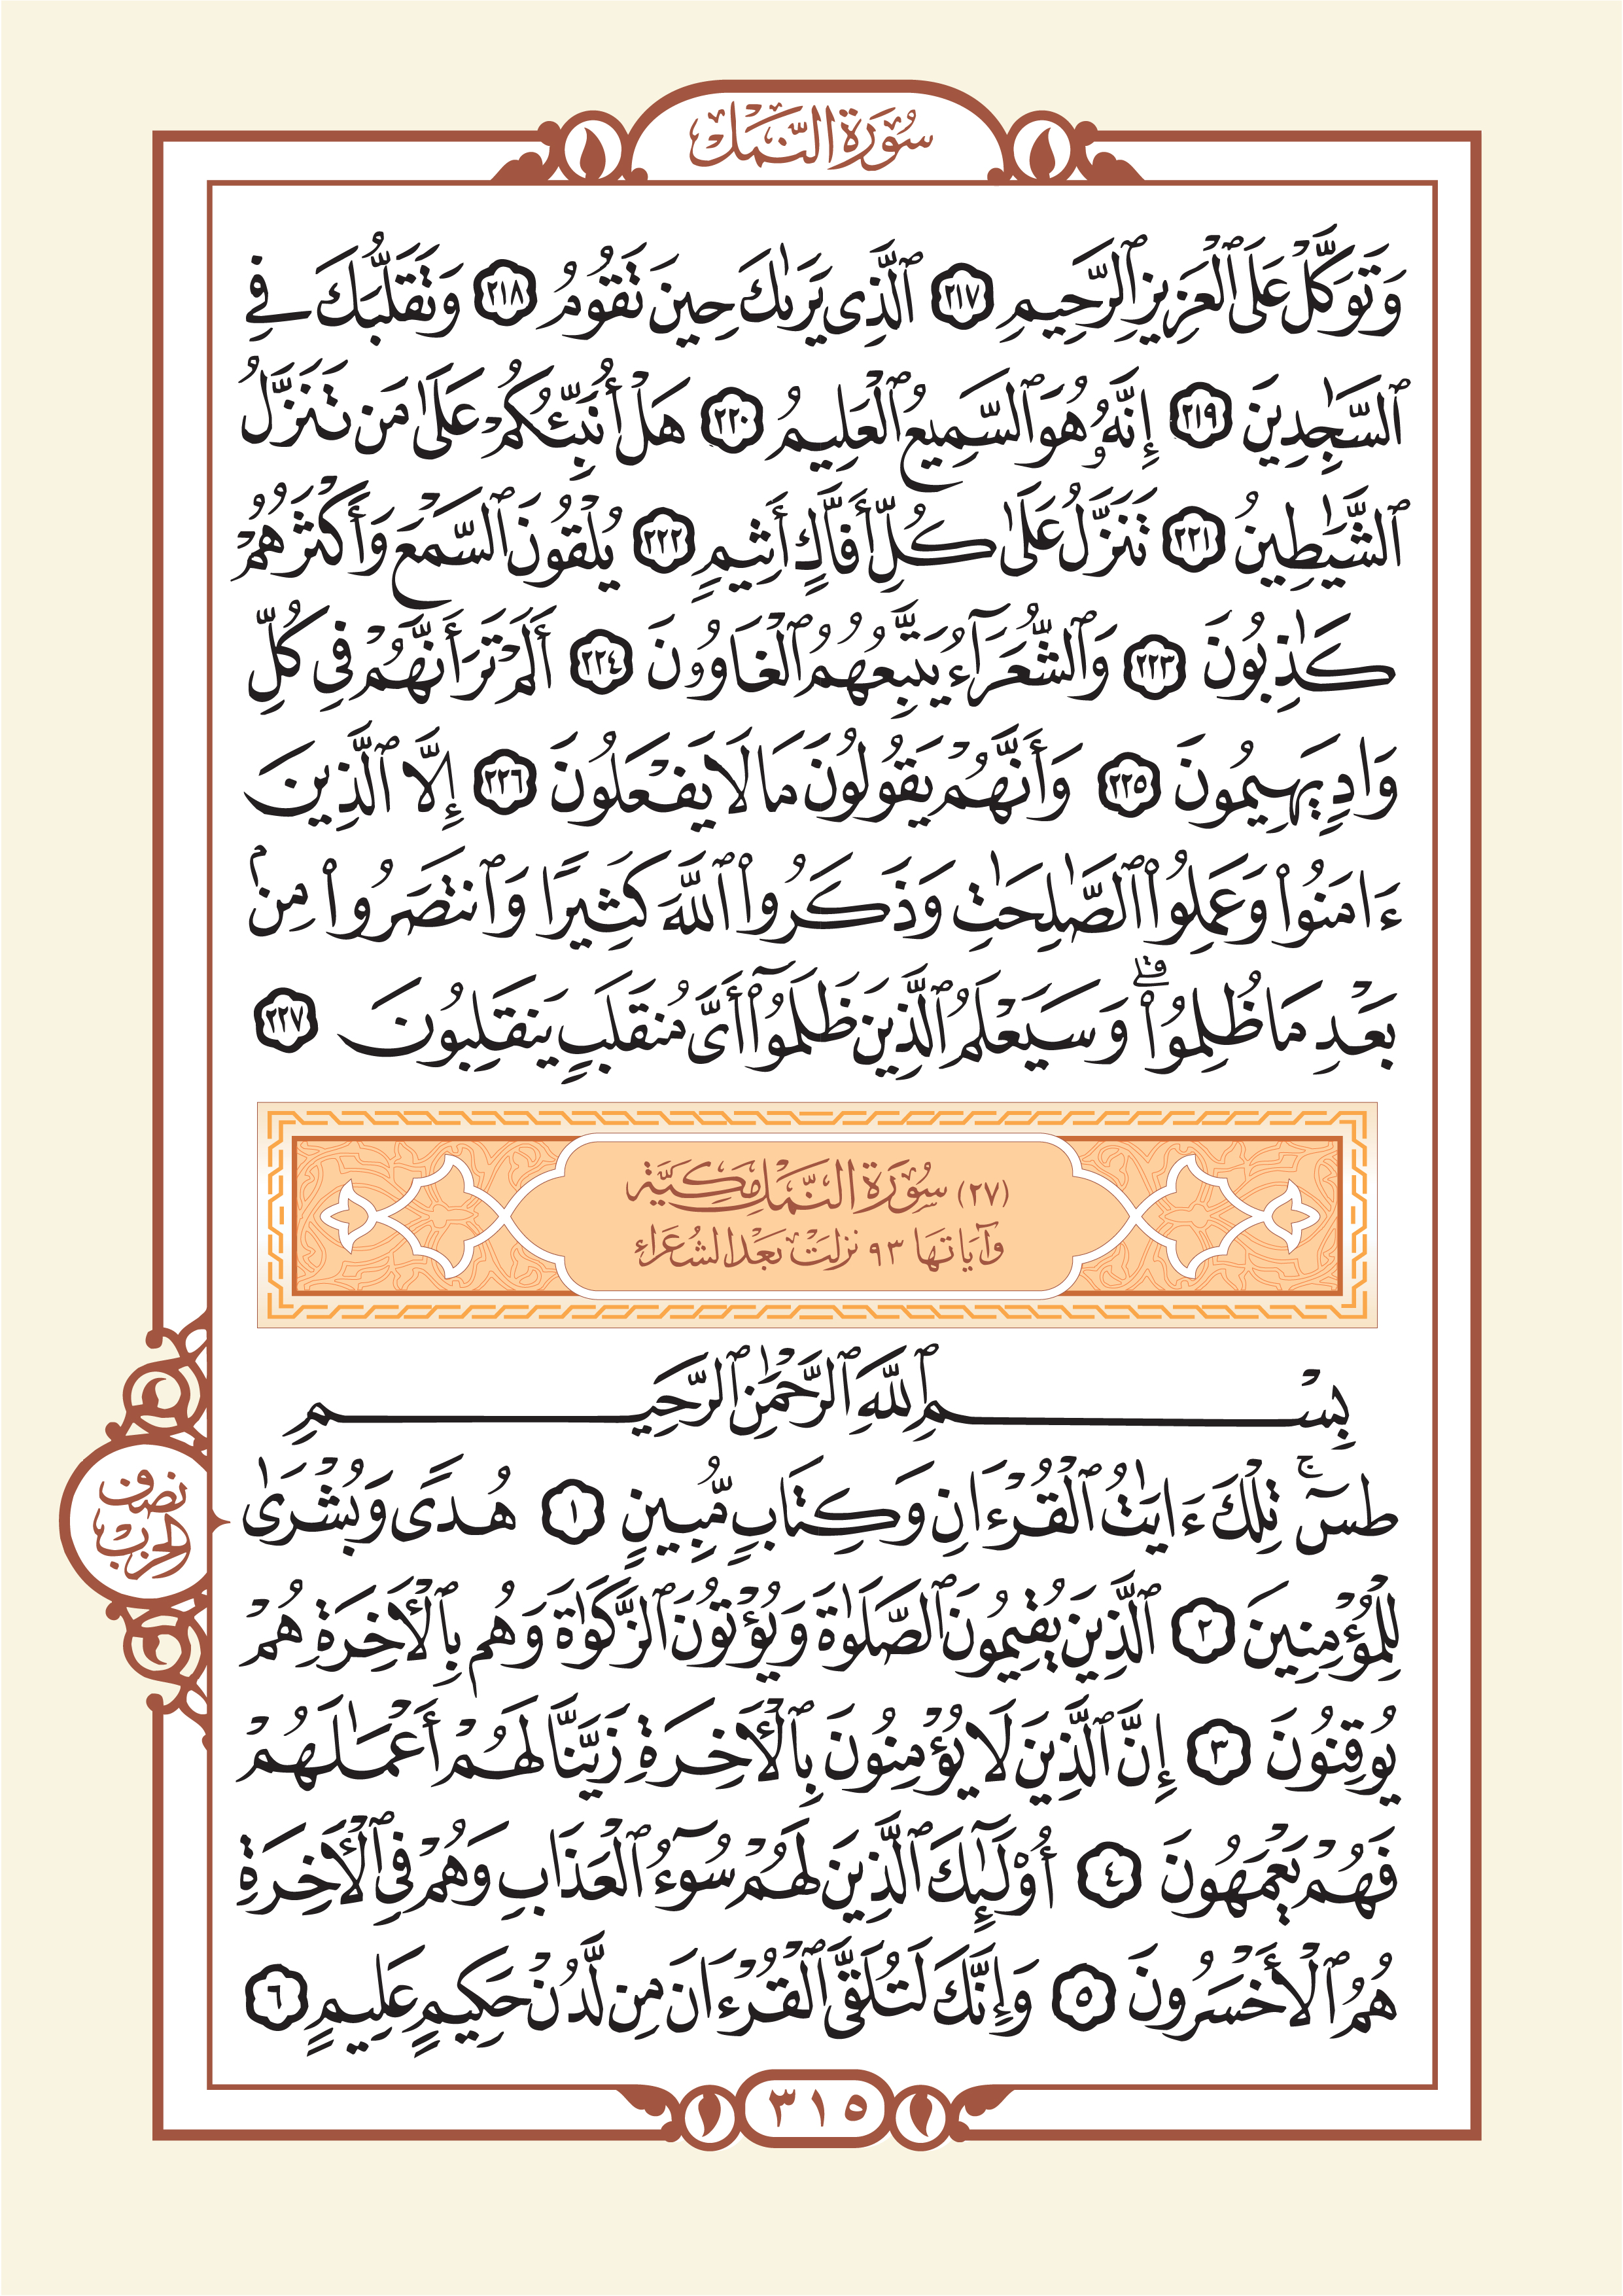 سُورَةُ النَّمْلِ
وَتَوَكَّلْ عَلَى ٱلْعَزِيزِ ٱلرَّحِيمِ ٢١٧ ٱلَّذِى يَرَىٰكَ حِينَ تَقُومُ ٢١٨ وَتَقَلُّبَكَ فِى
ٱلسَّـٰجِدِينَ ٢١٩ إِنَّهُۥ هُوَ ٱلسَّمِيعُ ٱلْعَلِيمُ ٢٢٠ هَلْ أُنَبِّئُكُمْ عَلَىٰ مَن تَنَزَّلُ
ٱلشَّيَـٰطِينُ ٢٢١ تَنَزَّلُ عَلَىٰ كُلِّ أَفَّاكٍ أَثِيمٍ ٢٢٢ يُلْقُونَ ٱلسَّمْعَ وَأَكْثَرُهُمْ
كَـٰذِبُونَ ٢٢٣ وَٱلشُّعَرَآءُ يَتَّبِعُهُمُ ٱلْغَاوُۥنَ ٢٢٤ أَلَمْ تَرَ أَنَّهُمْ فِى كُلِّ
وَادٍ يَهِيمُونَ ٢٢٥ وَأَنَّهُمْ يَقُولُونَ مَا لَا يَفْعَلُونَ ٢٢٦ إِلَّا ٱلَّذِينَ
ءَامَنُوا۟ وَعَمِلُوا۟ ٱلصَّـٰلِحَـٰتِ وَذَكَرُوا۟ ٱللَّهَ كَثِيرًا وَٱنتَصَرُوا۟ مِنۢ
بَعْدِ مَا ظُلِمُوا۟ ۗ وَسَيَعْلَمُ ٱلَّذِينَ ظَلَمُوٓا۟ أَىَّ مُنقَلَبٍ يَنقَلِبُونَ ٢٢٧
(٢٧) سُورَةُ النَّمْلِ مَكِّيَّة
وَآيَاتُهَا ٩٣ نَزَلَتْ بَعْدَ الشُّعَرَاءِ
بِسْمِ ٱللَّهِ ٱلرَّحْمَـٰنِ ٱلرَّحِيمِ
طسٓ ۚ تِلْكَ ءَايَـٰتُ ٱلْقُرْءَانِ وَكِتَابٍ مُّبِينٍ ١ هُدًى وَبُشْرَىٰ
لِلْمُؤْمِنِينَ ٢ ٱلَّذِينَ يُقِيمُونَ ٱلصَّلَوٰةَ وَيُؤْتُونَ ٱلزَّكَوٰةَ وَهُم بِٱلْـَٔاخِرَةِ هُمْ
يُوقِنُونَ ٣ إِنَّ ٱلَّذِينَ لَا يُؤْمِنُونَ بِٱلْـَٔاخِرَةِ زَيَّنَّا لَهُمْ أَعْمَـٰلَهُمْ
فَهُمْ يَعْمَهُونَ ٤ أُو۟لَـٰٓئِكَ ٱلَّذِينَ لَهُمْ سُوٓءُ ٱلْعَذَابِ وَهُمْ فِى ٱلْـَٔاخِرَةِ
هُمُ ٱلْأَخْسَرُونَ ٥ وَإِنَّكَ لَتُلَقَّى ٱلْقُرْءَانَ مِن لَّدُنْ حَكِيمٍ عَلِيمٍ ٦
نصف
الحزب
٣١٥